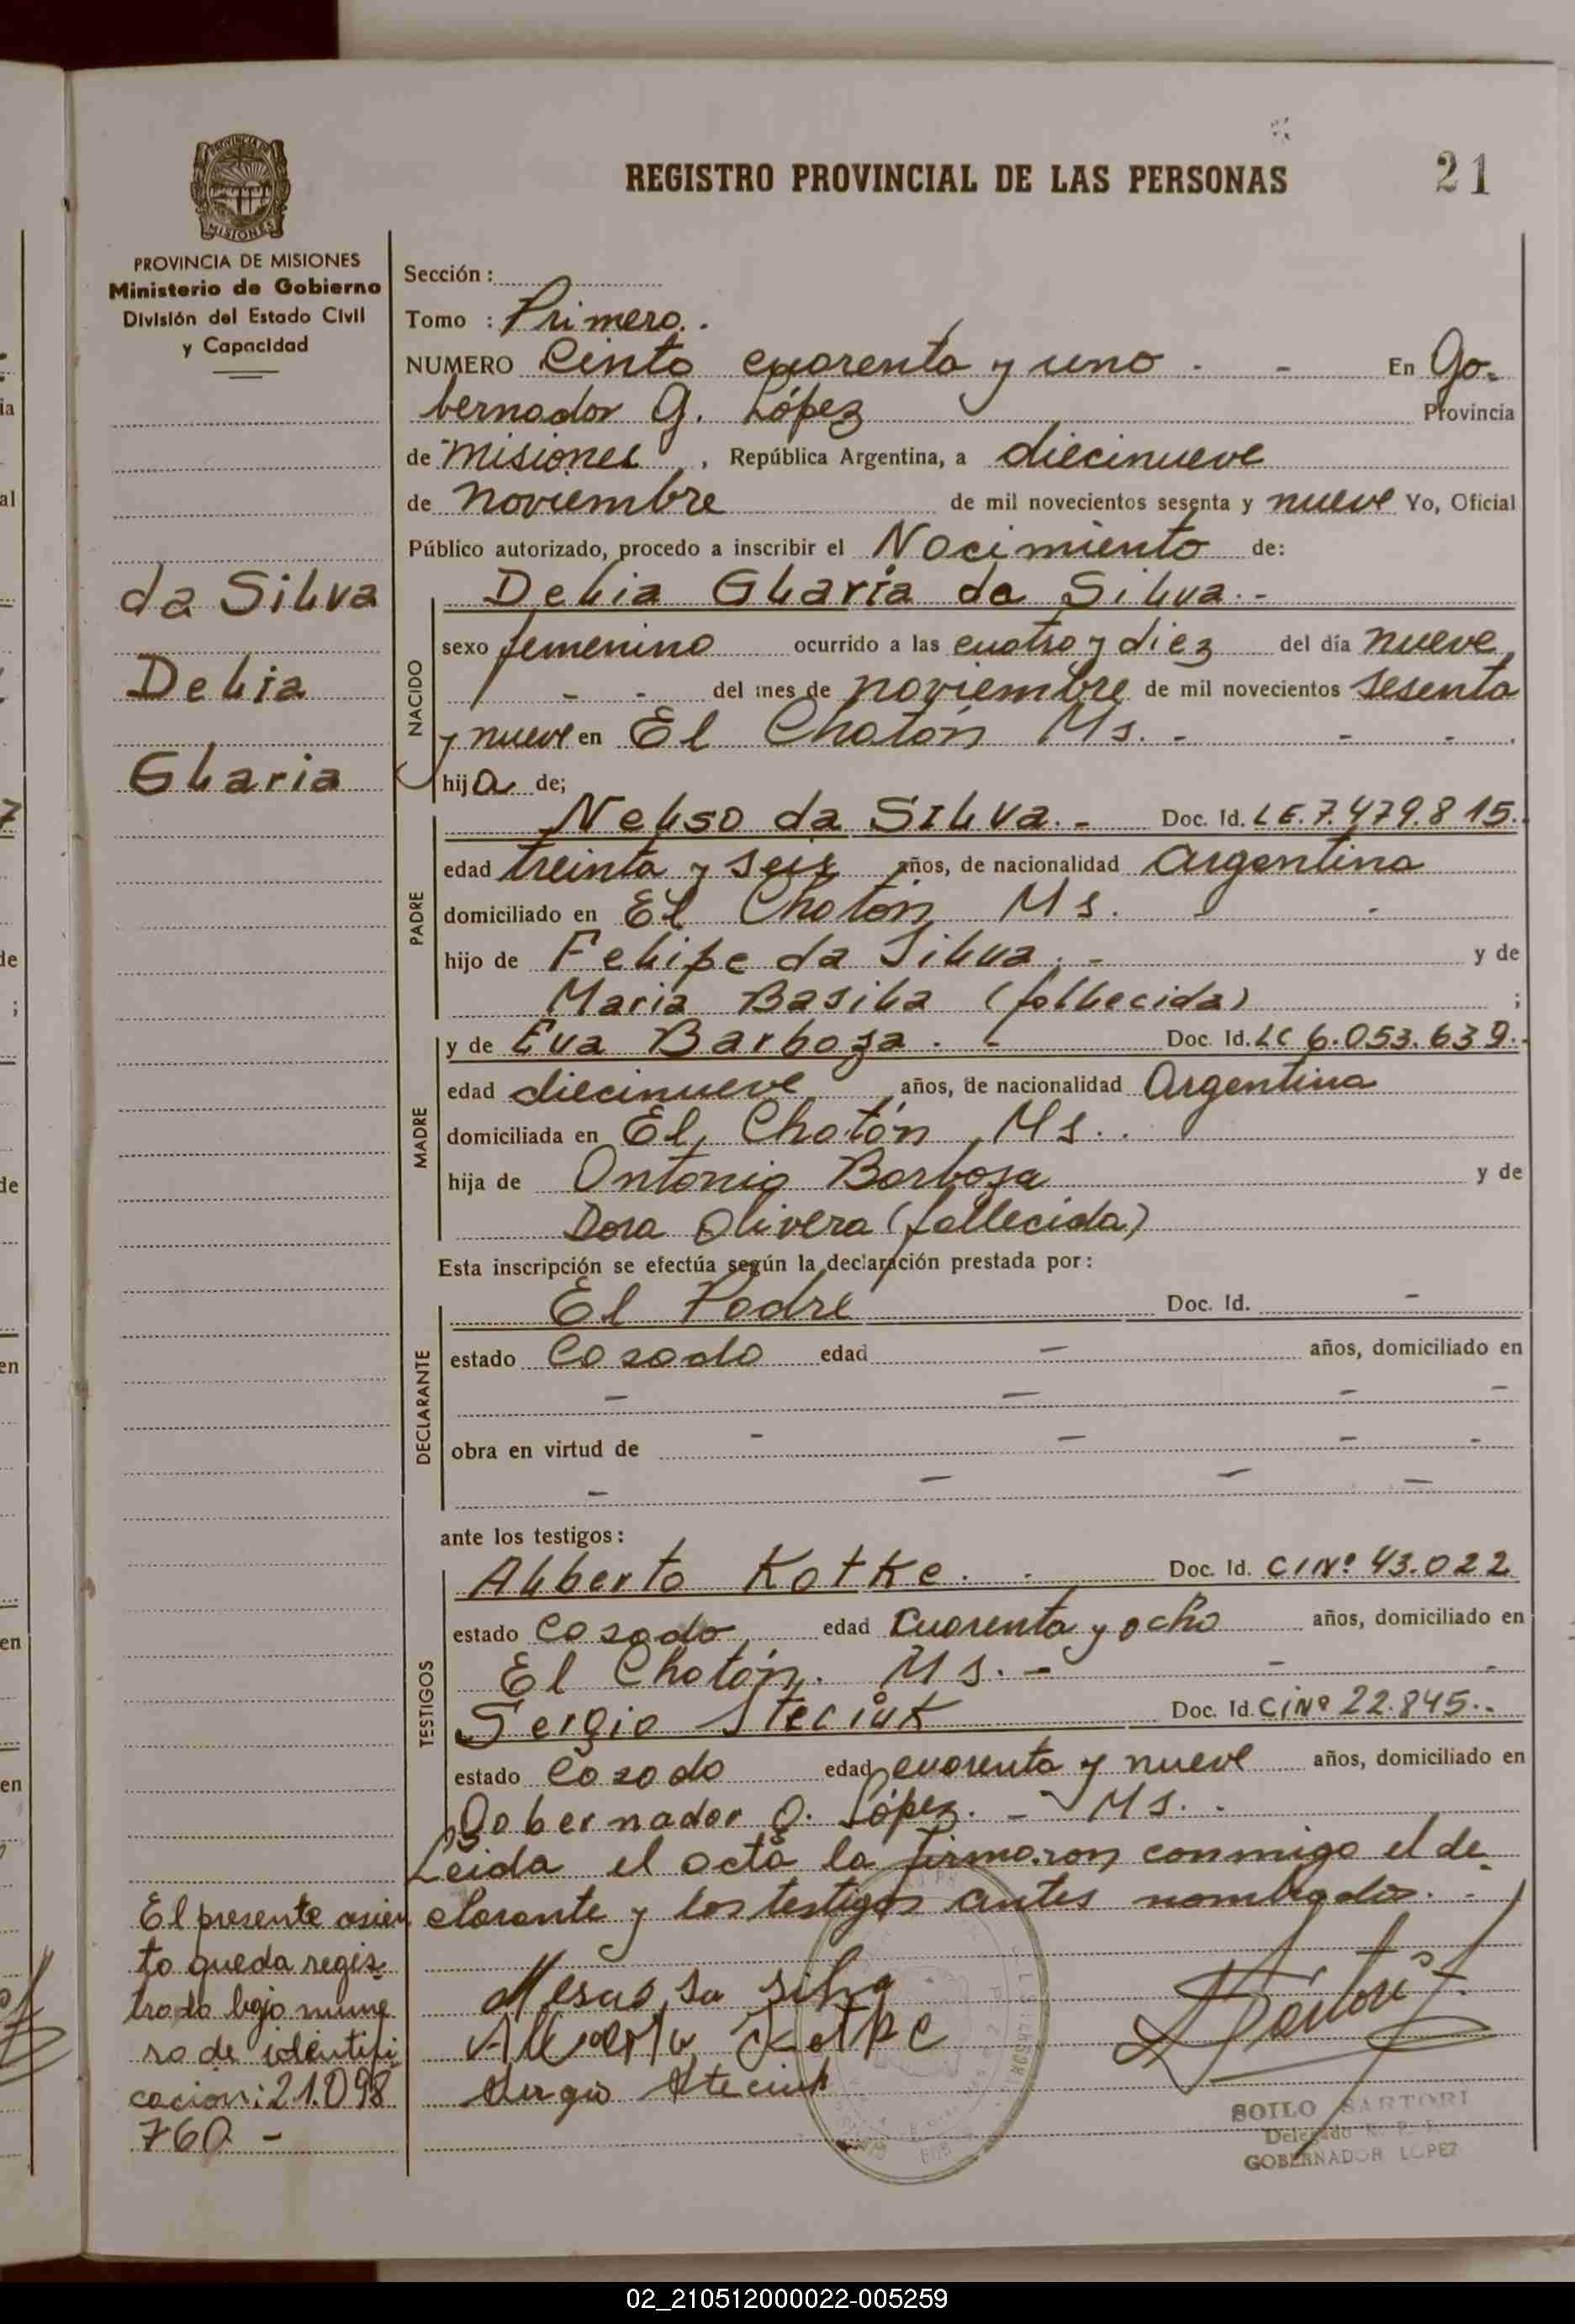 REGISTRO PROVINCIAL DE LAS PERSONAS
21
PROVINCIA DE MISIONES
PROVINCIA DE MISIONES
Ministerio de Gobierno
División del Estado Civil
y Capacidad
Sección :
Tomo : Primero. .
NUMERO Cinto cuarenta y uno - - En Go-
bernador G. López Provincia
de Misiones , República Argentina, a diecinueve
de noviembre de mil novecientos sesenta y nueve Yo, Oficial
Público autorizado, procedo a inscribir el Nacimiento de:
da Silva
Delia
Glaria
NACIDO
Delia Glaria da Silva. -
sexo femenino ocurrido a las cuatro y diez del día nueve
/ - - del mes de noviembre de mil novecientos sesenta
y nueve en El Chatón Ms. - - - .
hija de;
PADRE
Nelso da Silva. - Doc. Id. LE. 7.479.815.
edad treinta y seis años, de nacionalidad Argentina
domiciliado en El Chatón Ms. -
hijo de Felipe da Silva. - y de
Maria Basila (fallecida) ;
MADRE
y de Eva Barboza . - Doc. Id. LC 6.053.639.-
edad diecinueve años, de nacionalidad Argentina
domiciliada en El Chatón, Ms. .
hija de Antonio Barboza y de
Dora Olivera (fallecida)
Esta inscripción se efectúa según la declaración prestada por :
DECLARANTE
El Padre Doc. Id. -
estado Casado edad - años, domiciliado en
- - - -
obra en virtud de - - - -
- - - -
ante los testigos :
TESTIGOS
Alberto Kotke. . Doc. Id. CI Nº 43.022
estado Casado edad cuarenta y ocho años, domiciliado en
El Chatón. Ms. - - -
Sergio Steciuk Doc. Id. CI Nº 22.845.-
estado Casado edad cuarenta y nueve años, domiciliado en
Gobernador G. López. - Ms. .
Leida el acta la firmaron conmigo el de-
clarante y los testigos antes nombrados. -
El presente asien
to queda regis-
trado bajo nume
ro de identifi-
cación: 21.098
760 -
Alberto Kotke
Sergio Steciuk
SOILO SARTORI
Delegado R. P. P.
GOBERNADOR LOPEZ
02_210512000022-005259